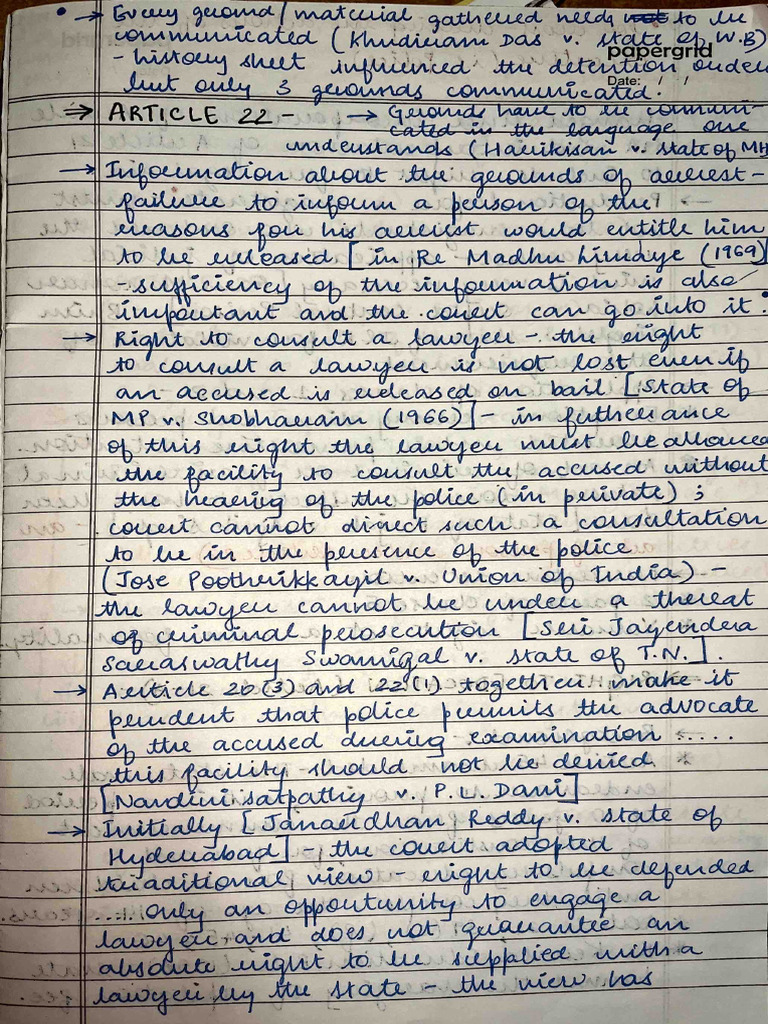 → Every ground/material gathered needs not to be
communicated (Khudiram Das v. State of W.B)
papergrid
- history sheet influenced the detention order
Date: / /
but only 3 grounds communicated.
⇒ ARTICLE 22 - → Grounds have to be communi-
cated in the language one
understands (Harikisan v. State of MH
→ Information about the grounds of arrest -
failure to inform a person of the
reasons for his arrest would entitle him
to be released [in Re Madhu limaye (1969)]
- sufficiency of the information is also
important and the court can go into it.
→ Right to consult a lawyer - the right
to consult a lawyer is not lost even if
an accused is released on bail [State of
MP v. Shobharam (1966)] - in futherance
of this right the lawyer must be allowed
the facility to consult the accused without
the hearing of the police (in private) ;
court cannot direct such a consultation
to be in the presence of the police
(Jose Pootherikkayil v. Union of India) -
the lawyer cannot be under a thereat
of criminal persecution [Sri Jayendera
Saraswathy Swamigal v. State of T.N.].
→ Article 20(3) and 22(1) together make it
prudent that police permits the advocate
of the accused during examination .....
this facility should not be denied
[Nandini satpathy v. P.L. Dani]
→ Initially [Janardhan Reddy v. State of
Hyderabad] - the court adopted
traditional view - right to be defended
..... only an opportunity to engage a
lawyer and does not guarantee an
absolute right to be supplied with a
lawyer by the state - the view has